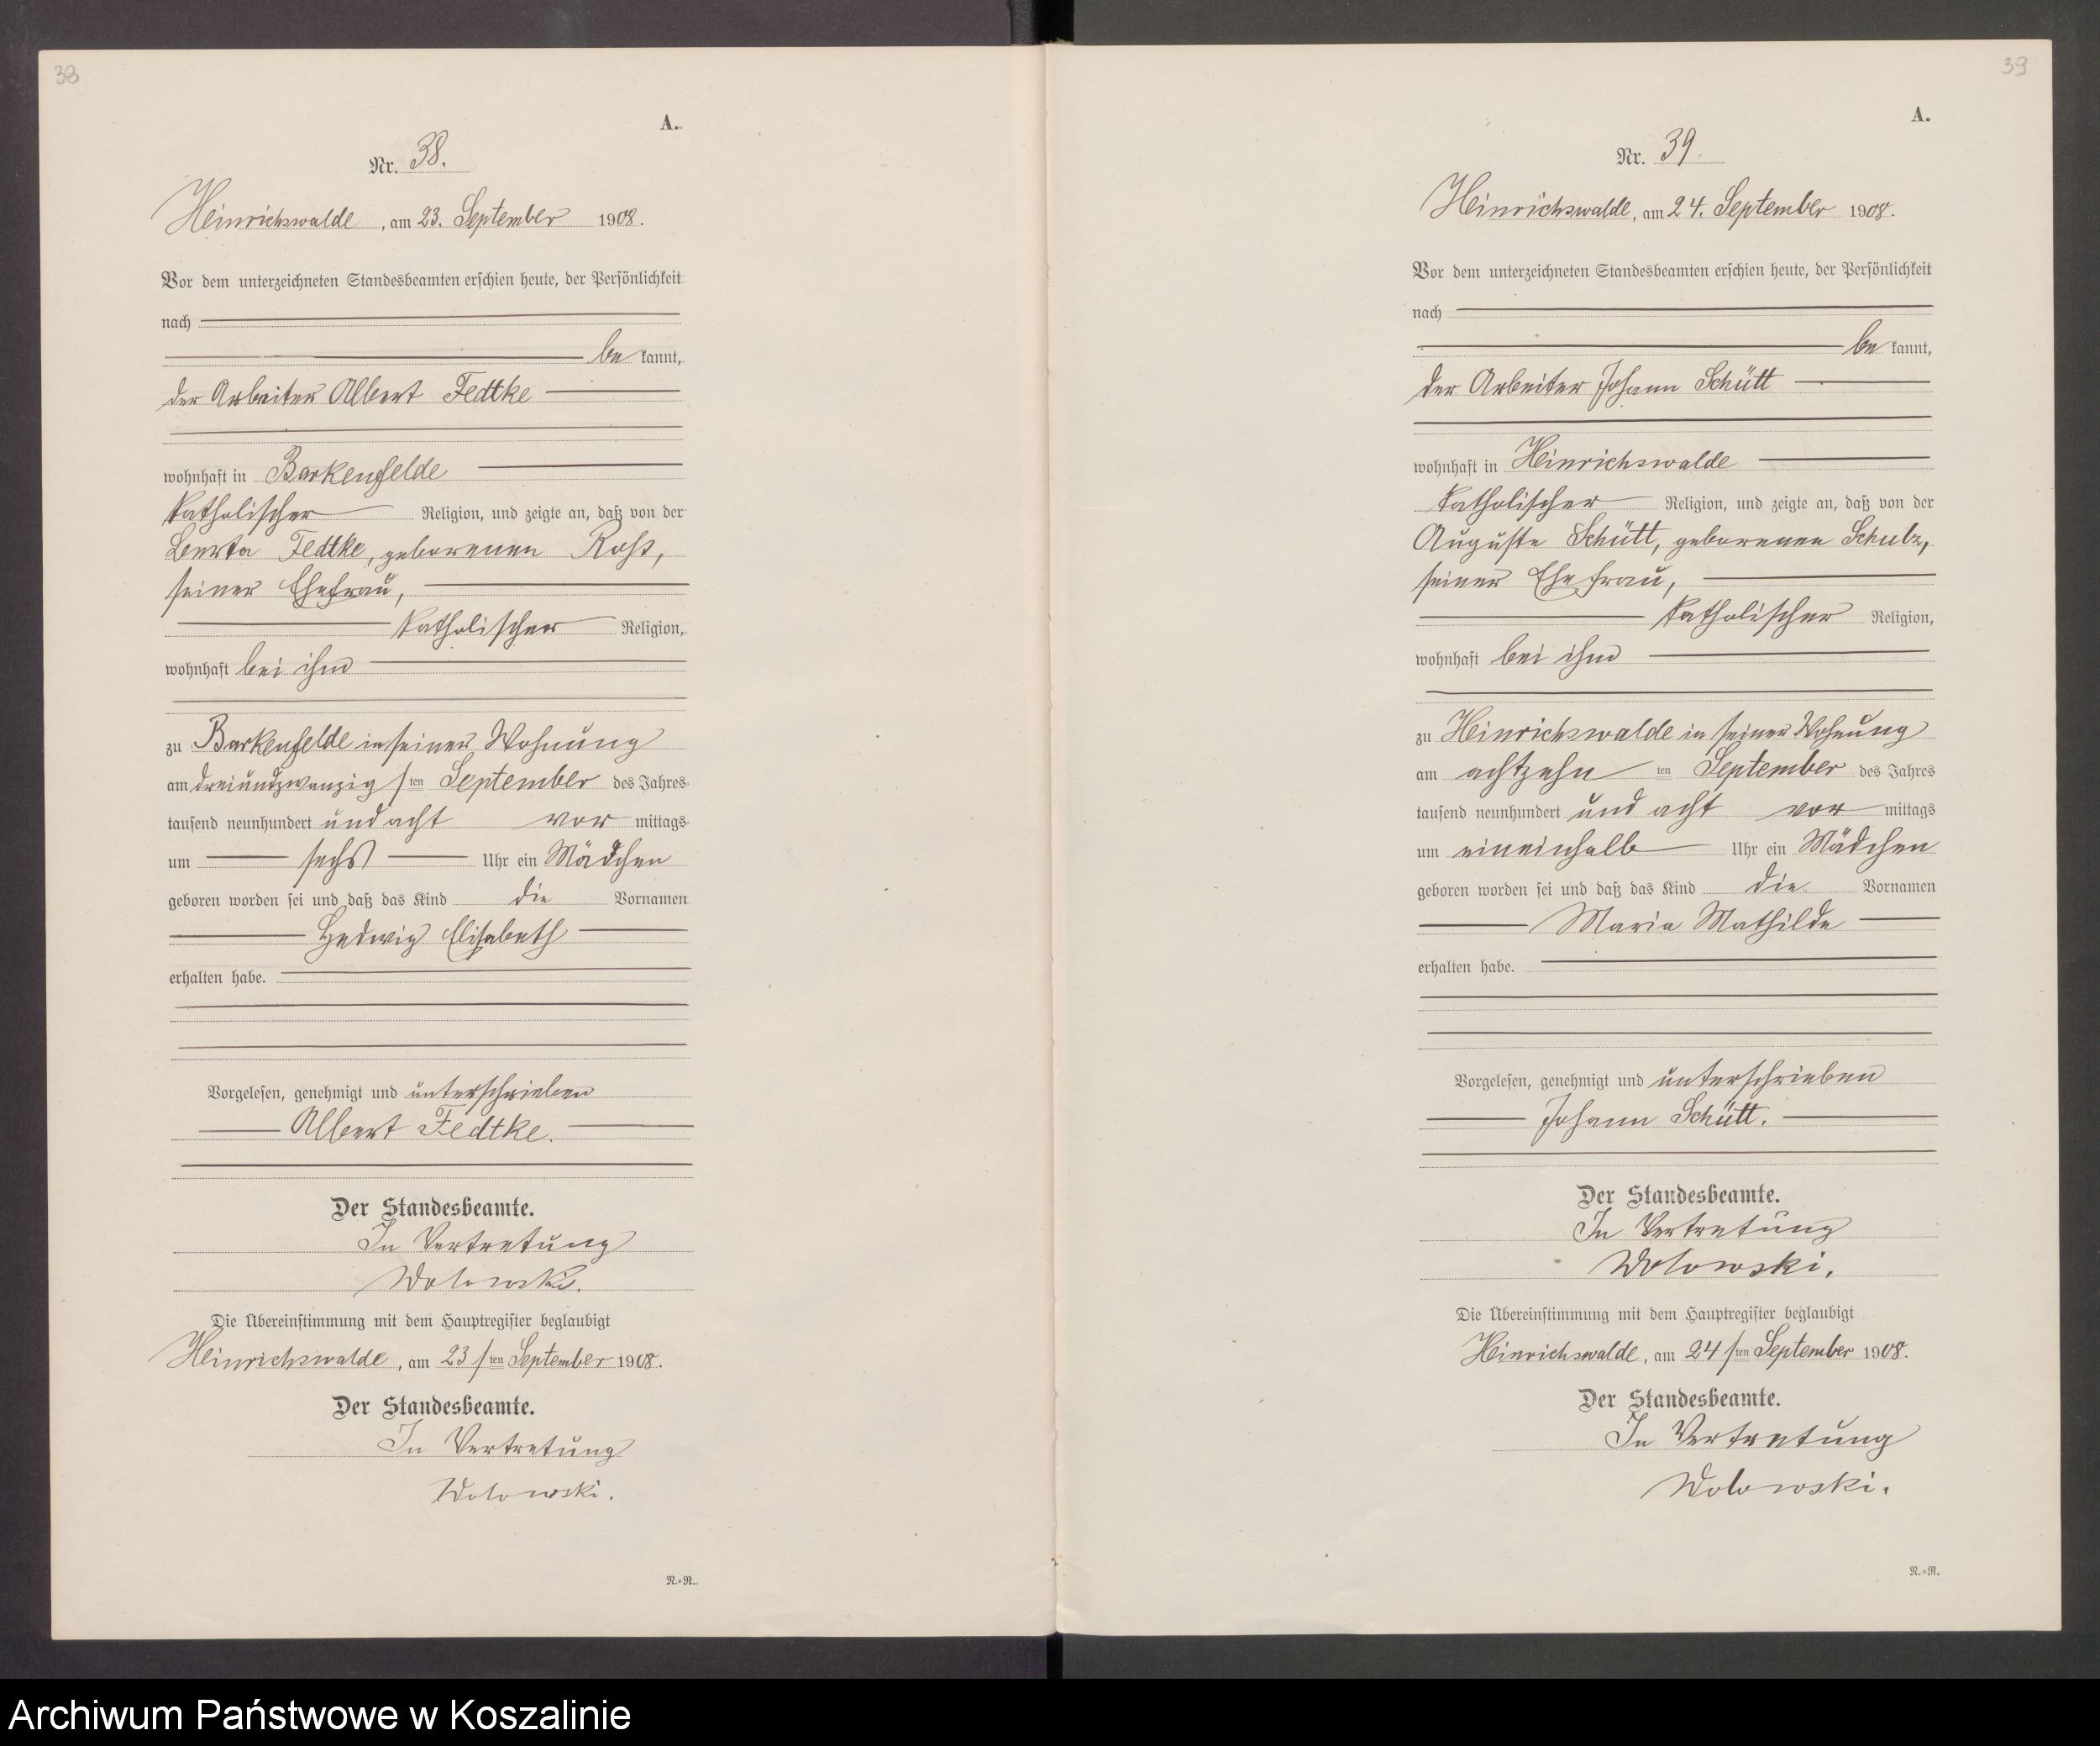 38
A.
Nr. 38.
Heinrichswalde, am 23. September 1908.
Vor dem unterzeichneten Standesbeamten erschien heute, der Persönlichkeit
nach
be kannt,
der Arbeiter Albert Fedtke
wohnhaft in Barkenfelde
katholischer Religion, und zeigte an, daß von der
Berta Fedtke, geborenen Roß,
seiner Ehefrau,
katholischer Religion,
wohnhaft bei ihm
zu Barkenfelde in seiner Wohnung
am dreiundzwanzigsten September des Jahres
tausend neunhundert und acht vor mittags
um sechs Uhr ein Mädchen
geboren worden sei und daß das Kind die Vornamen
Hedwig Elisabeth
erhalten habe.
Vorgelesen, genehmigt und unterschrieben
Albert Fedtke.
Der Standesbeamte.
In Vertretung
Wolowski.
Die Übereinstimmung mit dem Hauptregister beglaubigt
Heinrichswalde, am 23 sten September 1908.
Der Standesbeamte.
In Vertretung
Wolowski.
N.=N.
39
A.
Nr. 39.
Heinrichswalde, am 24. September 1908.
Vor dem unterzeichneten Standesbeamten erschien heute, der Persönlichkeit
nach
be kannt,
der Arbeiter Johann Schütt
wohnhaft in Heinrichswalde
katholischer Religion, und zeigte an, daß von der
Auguste Schütt, geborenen Schulz,
seiner Ehefrau,
katholischer Religion,
wohnhaft bei ihm
zu Heinrichswalde in seiner Wohnung
am achtzehn ten September des Jahres
tausend neunhundert und acht vor mittags
um eineinhalb Uhr ein Mädchen
geboren worden sei und daß das Kind die Vornamen
Maria Mathilde
erhalten habe.
Vorgelesen, genehmigt und unterschrieben
Johann Schütt.
Der Standesbeamte.
In Vertretung
Wolowski.
Die Übereinstimmung mit dem Hauptregister beglaubigt
Heinrichswalde, am 24 sten September 1908.
Der Standesbeamte.
In Vertretung
Wolowski.
N.=N.
Archiwum Państwowe w Koszalinie